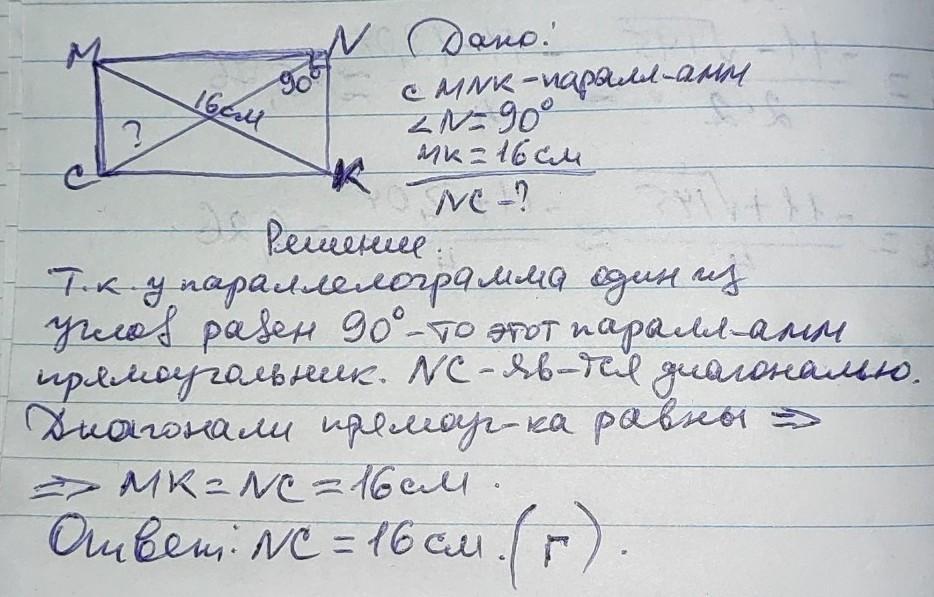 M N
90°
16см
?
C K
Дано:
CMNK-паралл-амм
∠N=90°
MK=16см
NC-?
Решение.
Т.к. у параллелограмма один из
углов равен 90°-то этот паралл-амм
прямоугольник. NC-яв-тся диагональю.
Диагонали прямоуг-ка равны ⇒
⇒ MK=NC=16см.
Ответ: NC=16см.(г).